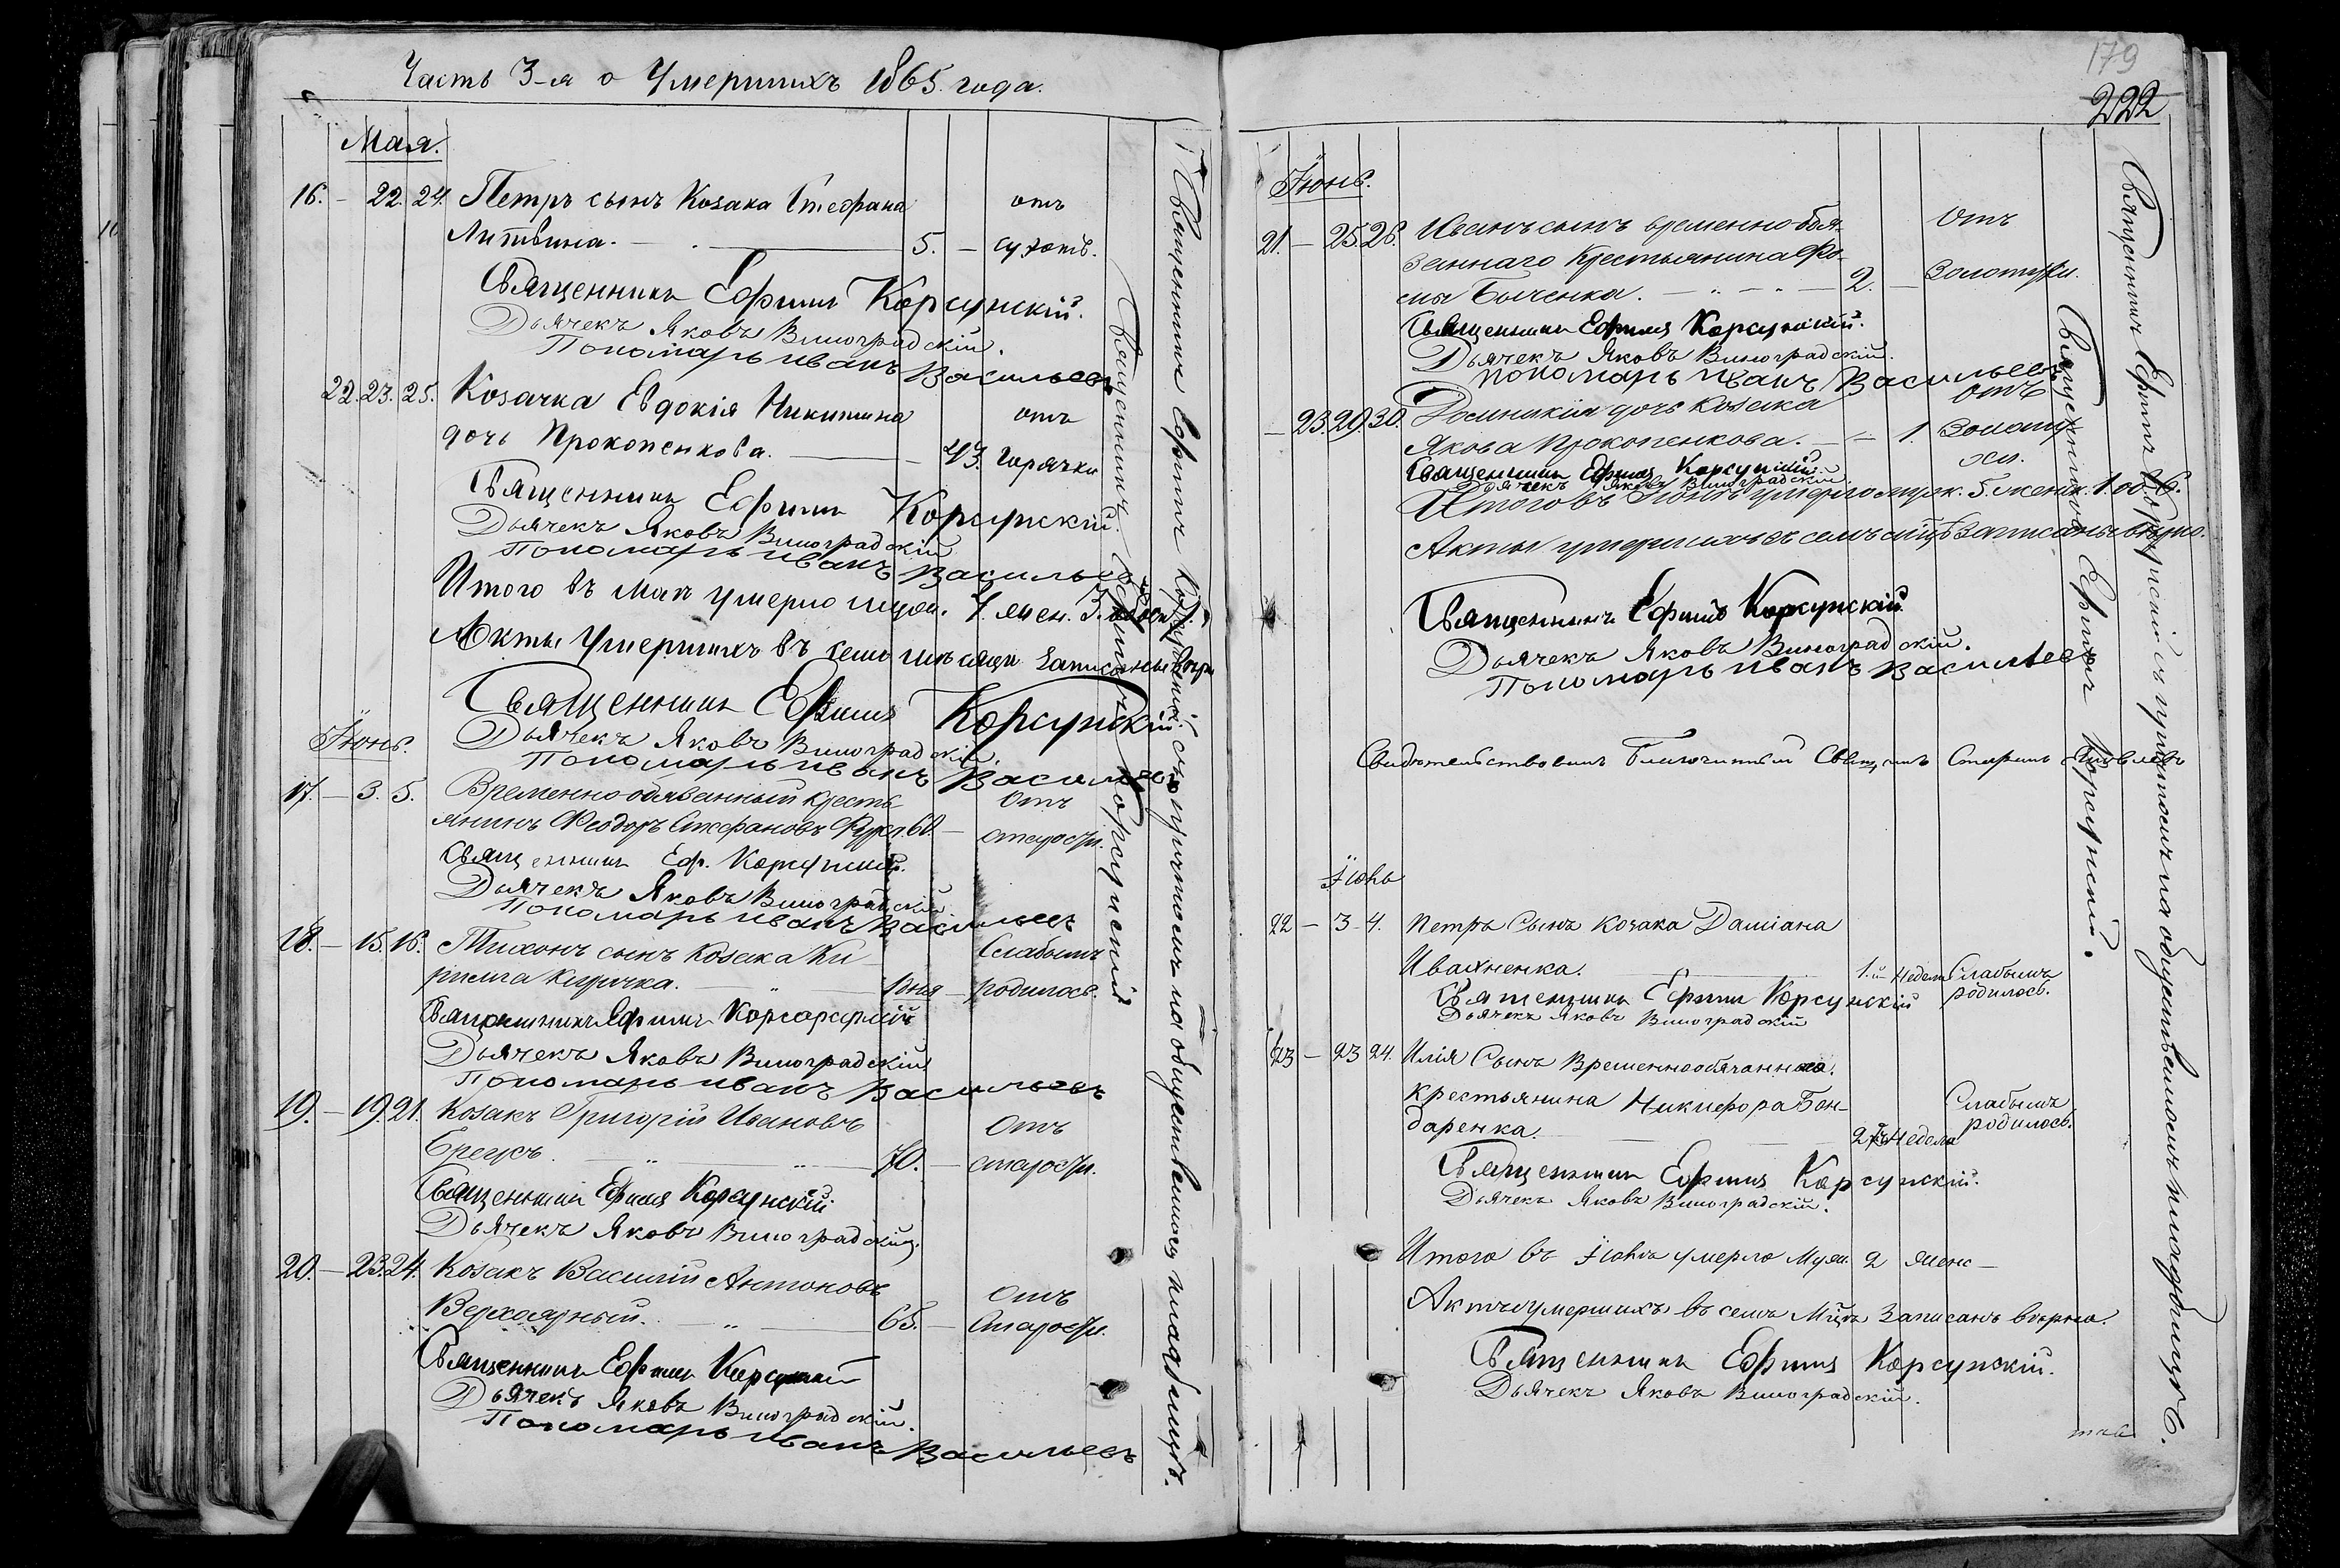 Часть 3-я о Умершихъ 1865. года.
Мая.
16. – 22. 24. Петръ сынъ Козака Стефана отъ
Литвина. — 5. – сухотъ.
Священникъ Ефимъ Корсунскій.
Дьячекъ Яковъ Виноградскій.
Пономарь иванъ Васильевъ
22. 23. 25. Козачка Евдокія Никитина отъ
дочь Прокопенкова. — 43. горячки
Священникъ Ефимъ Корсунскій.
Дьячекъ Яковъ Виноградскій
Пономарь иванъ Васильевъ
Итого въ маѣ умерло муж. 4. жен. 3.
Акты Умершихъ въ семъ мѣсяцѣ записаны вѣрн
Священникъ Ефимъ Корсунскій.
Дьячекъ Яковъ Виноградскій.
Пономарь иванъ Васильевъ
Іюнь.
17. – 3. 5. Временнообязанный кресть Отъ
янинъ Феодоръ Стефановъ 60. – старости.
Священникъ Еф. Корсунскій.
Дьячекъ Яковъ Виноградскій
Пономарь иванъ Васильевъ
18. – 15. 16. Тихонъ сынъ Козака Ки слабымъ
рилла Кирична. — 1 дня – родилось.
Священникъ Ефимъ
Дьячекъ Яковъ Виноградскій
Пономарь иванъ Васильевъ
19. – 19. 21. Козакъ Григорій Ивановъ Отъ
— 70. – старости.
Священникъ Ефимъ Корсунскій
Дьячекъ Яковъ Виноградскій.
20. – 23. 24. Козакъ Василій Антоновъ Отъ
Верхоярный. — 65. – Старости.
Священникъ Ефимъ Корсунскій
Дьячекъ Яковъ Виноградскій.
Пономарь иванъ Васильевъ
Священникъ Ефимъ Корсунскій
Священникъ Ефимъ Корсунскій съ причтомъ на общественномъ кладбищѣ.
179
222
Іюнь.
21. – 25. 26. Иванъ сынъ временнообя- Отъ
заннаго крестьянина Фо-
мы Быченка. — 2. – Золотухи.
Священникъ Ефимъ Корсунскій.
Дьячекъ Яковъ Виноградскій.
пономарь иванъ Васильевъ
– 23. 29. 30. Домникія дочь Козака отъ
Якова Прокопенкова. — 1. Золоту
хи.
Священникъ Ефимъ Корсунскій
Дьячекъ Яковъ Виноградскій
Итого въ Іюнѣ умерло муж. 5. женск. 1. об. 6.
Акты умершихъ въ семъ мцѣ записаны вѣрно.
Священникъ Ефимъ Корсунскій.
Дьячекъ Яковъ Виноградскій.
Пономарь иванъ Васильевъ
Свидѣтельствовалъ Благочинный Священникъ
Іюль
22 – 3 – 4. Петръ Сынъ Козака Даміана
Ивахненка. — 1. й Недели Слабымъ
родилось.
Священникъ Ефимъ Корсунскій
Дьячекъ Яковъ Виноградскій
23 – 23 24. Илія Сынъ Временнообязаннаго
крестьянина Никифора Бон- Слабымъ
даренка. — 2 Недели родилось.
Священникъ Ефимъ Корсунскій.
Дьячекъ Яковъ Виноградскій.
Итого въ Іюлѣ умерло Муж. 2 женс –
Акты умершихъ въ семъ Мцѣ Записанъ вѣрно.
Священникъ Ефимъ Корсунскій.
Дьячекъ Яковъ Виноградскій.
Священникъ Ефимъ Корсунскій.
Священникъ Ефимъ Корсунскій съ причтомъ на общественномъ кладбищѣ.